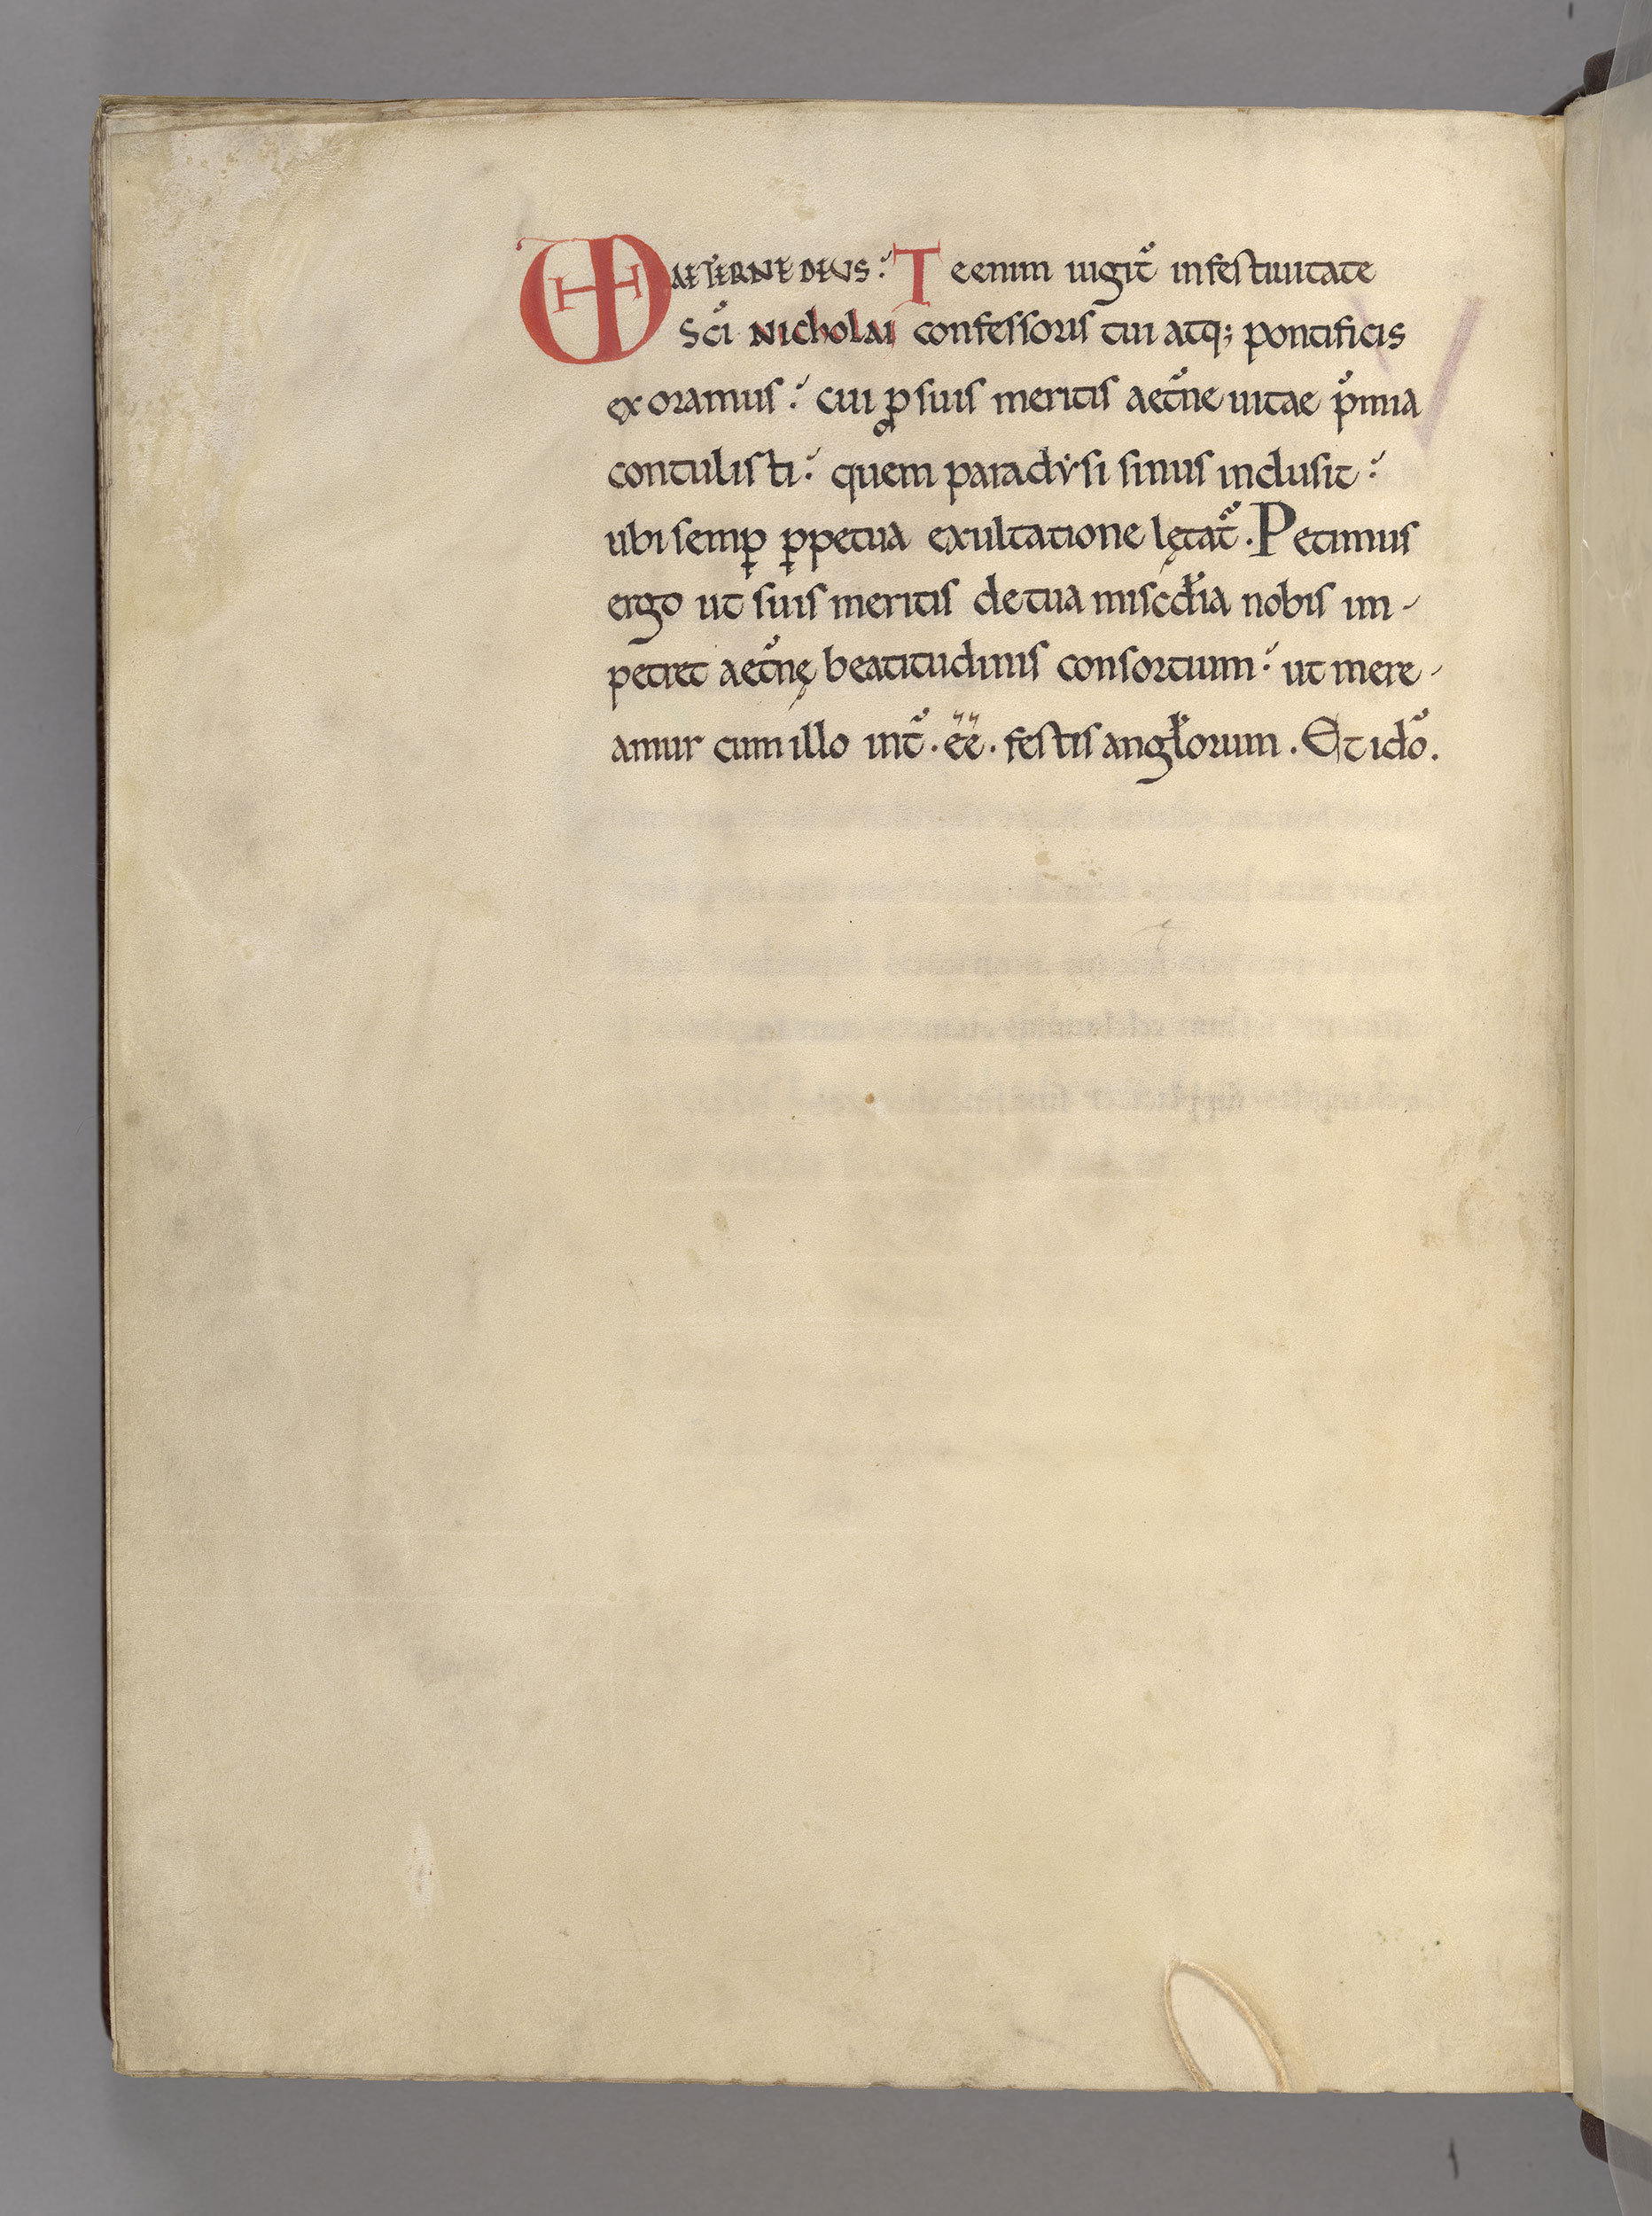 VD AETERNE DEUS: Te enim iugit̄ in festiuitate
Sc̄i Nicholai confessoris tui atq; pontificis
exoramus: cui ꝓ suis meritis aet̄ne uitae p̄mia
contulisti: quem paradẏsi sinus inclusit:
ubi semꝑ ꝑpetua exultatione lętat̄. Petimus
ergo ut suis meritis de tua misc̄dia nobis im-
petret aet̄nę beatitudinis consortium: ut mere-
amur cum illo int̄. ēē. festis angl̄orum. Et idō.